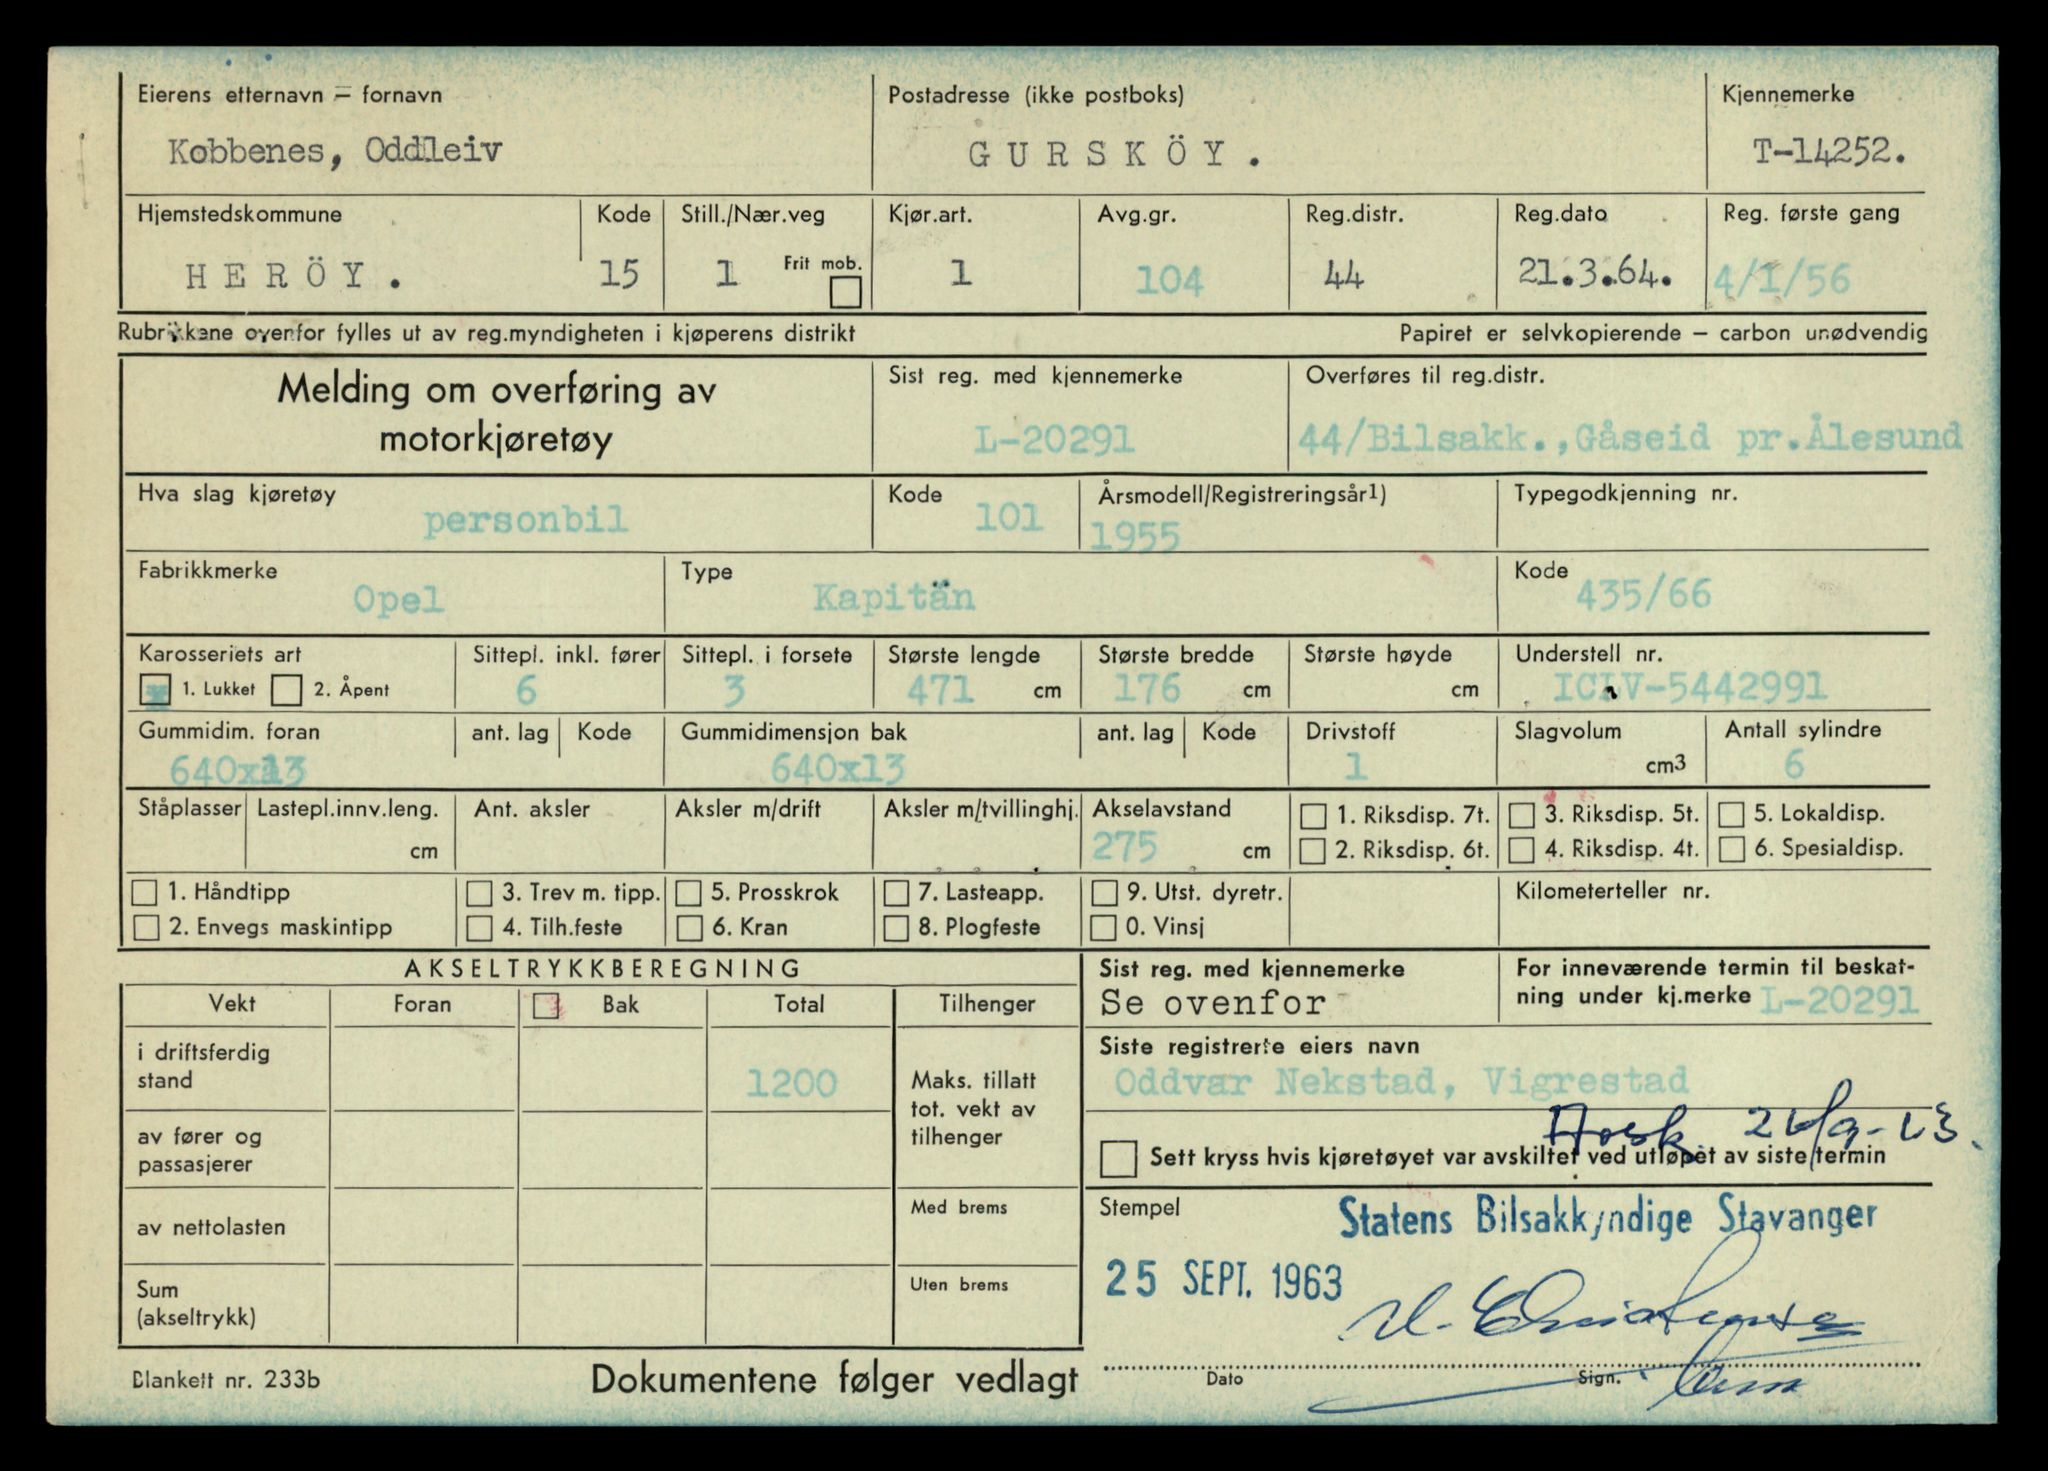 Eierens etternavn – fornavn Postadresse (ikke postboks) Kjennemerke
Kobbenes, Oddleiv GURSKÖY. T-14252.
Hjemstedskommune Kode Still./Nær.veg Kjør.art. Avg.gr. Reg.distr. Reg.dato Reg. første gang
HERÖY. 15 1 Frit mob. 1 104 44 21.3.64. 4/I/56
Rubrikkene ovenfor fylles ut av reg.myndigheten i kjøperens distrikt Papiret er selvkopierende – carbon unødvendig
Melding om overføring av
motorkjøretøy
Sist reg. med kjennemerke Overføres til reg.distr.
L-20291 44/Bilsakk.,Gåseid pr.Ålesund
Hva slag kjøretøy Kode Årsmodell/Registreringsår1) Typegodkjenning nr.
personbil 101 1955
Fabrikkmerke Type Kode
Opel Kapitän 435/66
Karosseriets art Sittepl. inkl. fører Sittepl. i forsete Største lengde Største bredde Største høyde Understell nr.
x 1. Lukket 2. Åpent 6 3 471 cm 176 cm cm ICLV-5442991
Gummidim. foran ant. lag Kode Gummidimensjon bak ant. lag Kode Drivstoff Slagvolum Antall sylindre
640x13 640x13 1 cm3 6
Ståplasser Lastepl.innv.leng. Ant. aksler Aksler m/drift Aksler m/tvillinghj. Akselavstand 1. Riksdisp. 7t. 3. Riksdisp. 5t. 5. Lokaldisp.
cm 275 cm 2. Riksdisp. 6t. 4. Riksdisp. 4t. 6. Spesialdisp.
1. Håndtipp 3. Trev m. tipp. 5. Prosskrok 7. Lasteapp. 9. Utst. dyretr. Kilometerteller nr.
2. Envegs maskintipp 4. Tilh.feste 6. Kran 8. Plogfeste 0. Vinsj
AKSELTRYKKBEREGNING
Vekt Foran Bak Total Tilhenger
i driftsferdig
stand 1200
Maks. tillatt
tot. vekt av
tilhenger
av fører og
passasjerer
av nettolasten Med brems
Sum
(akseltrykk) Uten brems
Sist reg. med kjennemerke
Se ovenfor
For inneværende termin til beskat-
ning under kj.merke L-20291
Siste registrerte eiers navn
Oddvar Nekstad, Vigrestad
Sett kryss hvis kjøretøyet var avskiltet ved utløpet av siste termin
Stempel Statens Bilsakkyndige Stavanger
25 SEPT. 1963
Dato Sign.
Blankett nr. 233b Dokumentene følger vedlagt